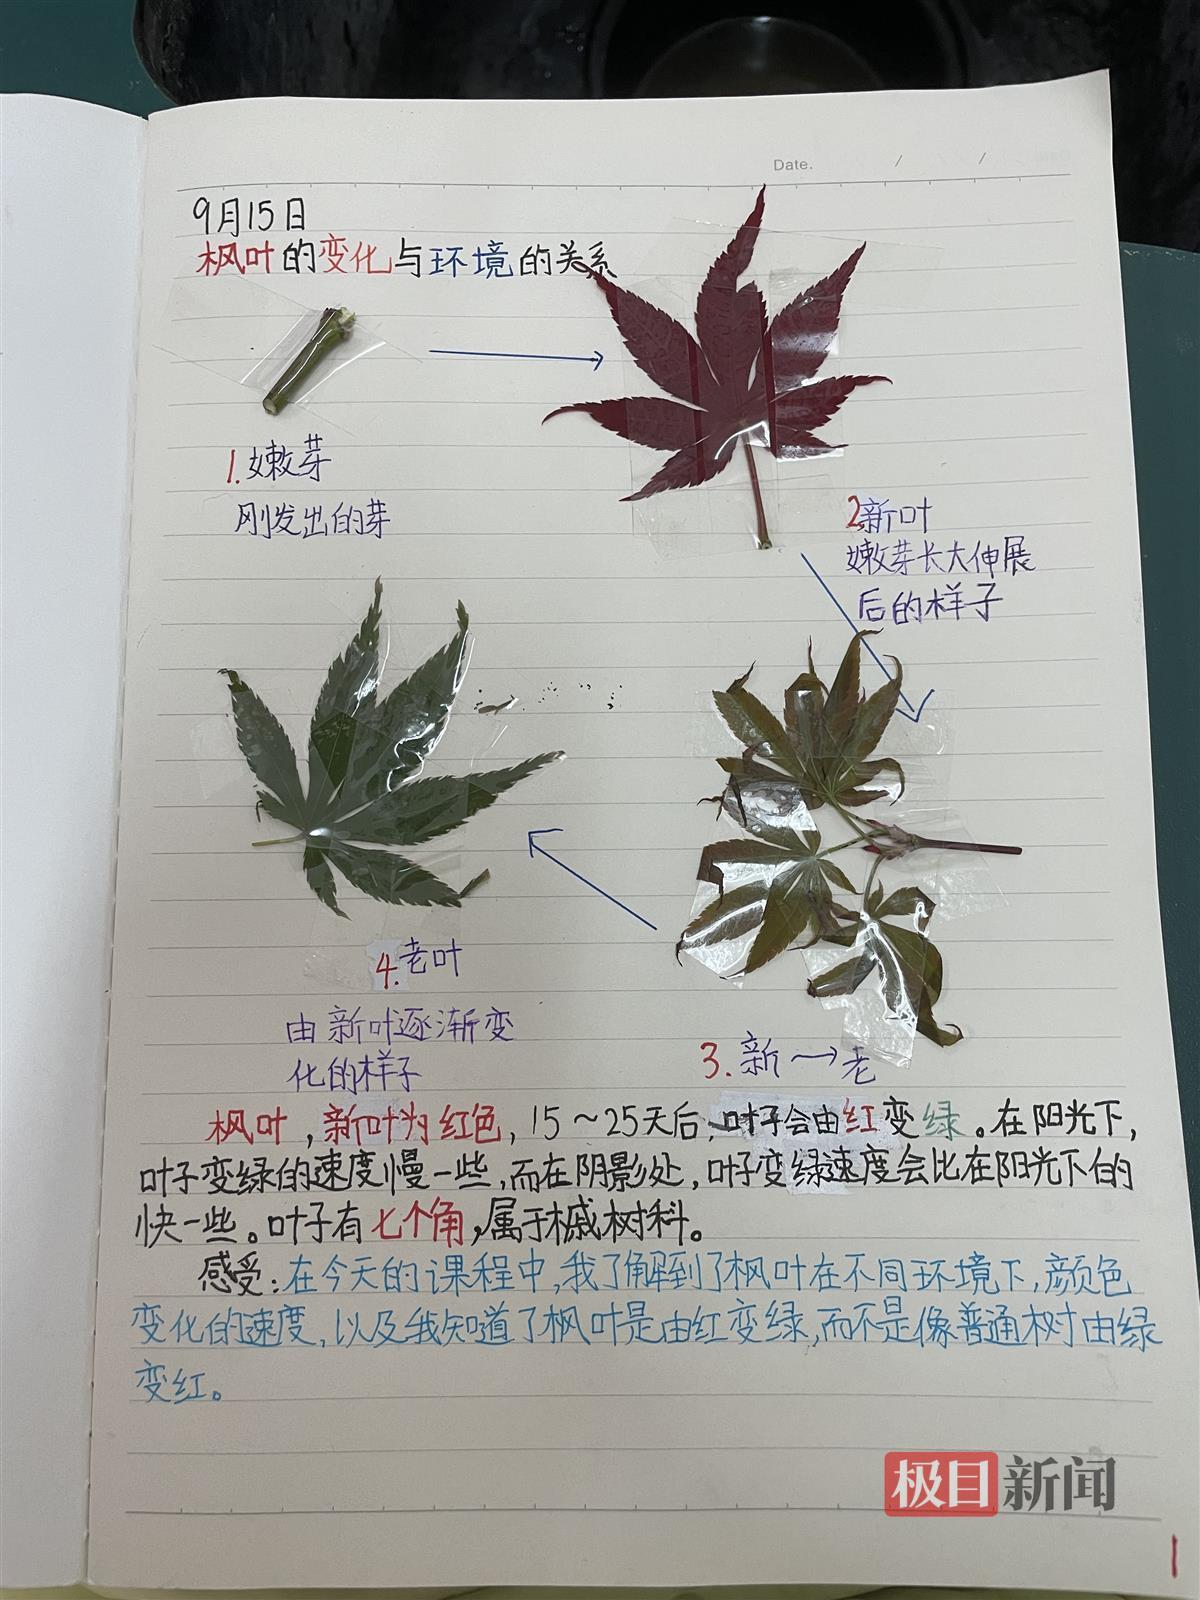 Date. / /
9月15日
枫叶的变化与环境的关系
1.嫩芽
刚发出的芽
2.新叶
嫩芽长大伸展
后的样子
4.老叶
由新叶逐渐变
化的样子
3.新→老
枫叶,新叶为红色,15~25天后,叶子会由红变绿。在阳光下,
叶子变绿的速度慢一些,而在阴影处,叶子变绿速度会比在阳光下的
快一些。叶子有七个角,属于槭树科。
感受:在今天的课程中,我了解到了枫叶在不同环境下,颜色
变化的速度,以及我知道了枫叶是由红变绿,而不是像普通树由绿
变红。
极目新闻
1